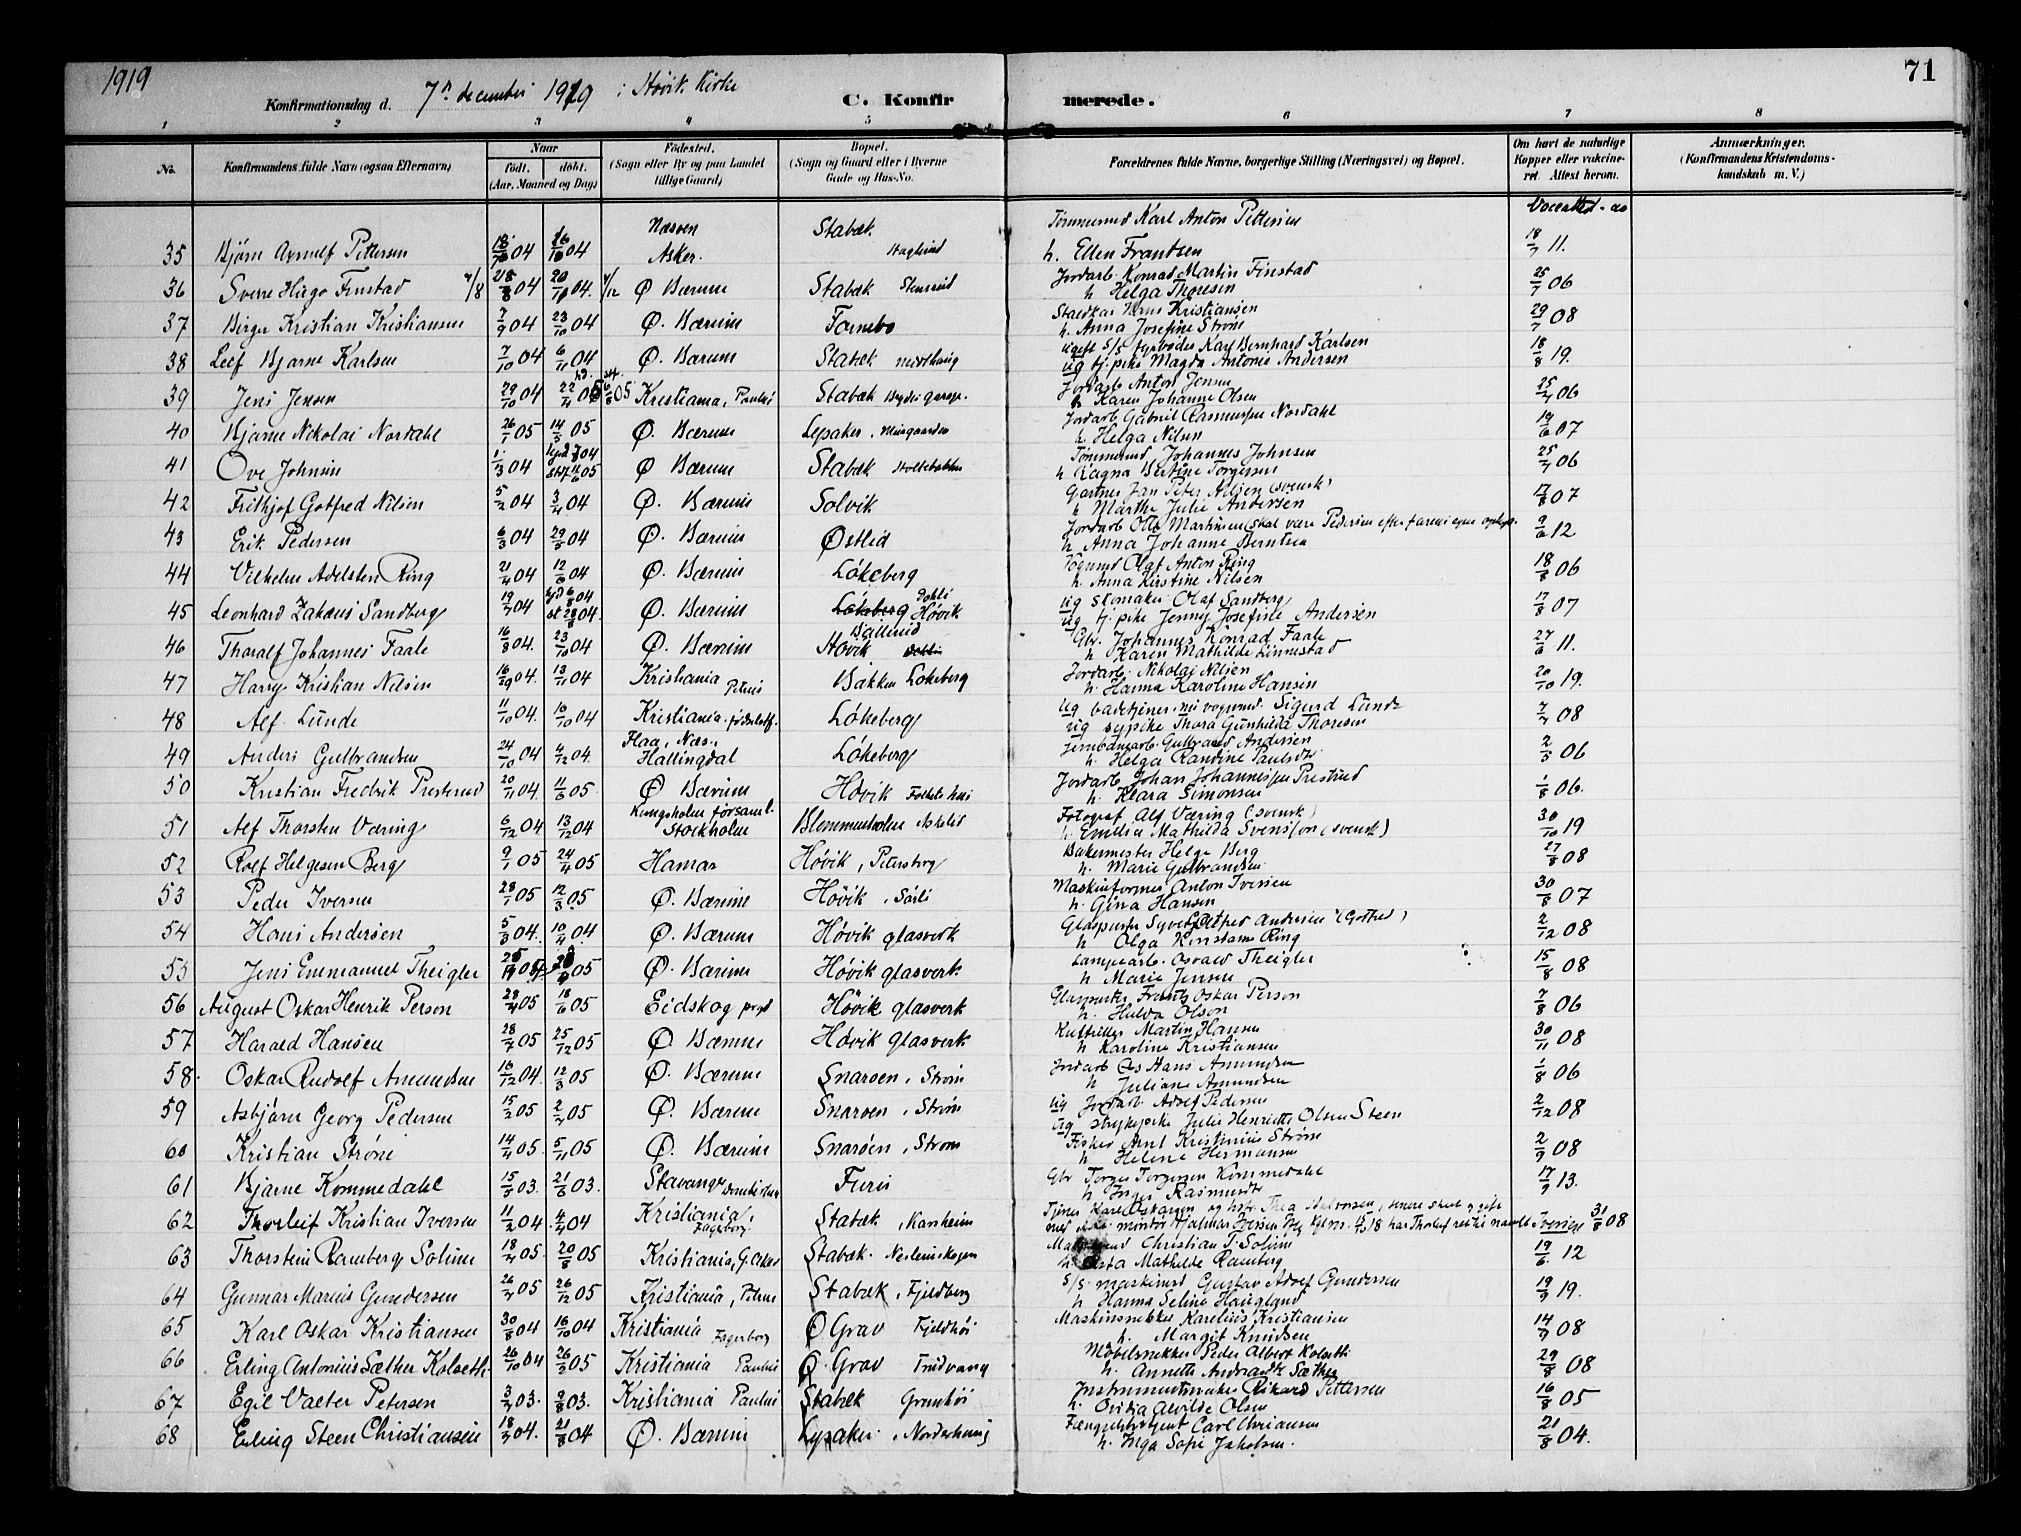 1919
71
Konfirmationsdag d. 7de december 1919 i Høvik Kirke
C. Konfirmerede.
1 2 3 4 5 6 7 8
No. Konfirmandens fulde Navn (ogsaa Efternavn) Naar født. døbt. (Aar, Maaned og Dag) Fødested. (Sogn eller By og paa Landet tillige Gaard) Bopæl. (Sogn og Gaard eller i Byerne Gade og Hus-No. Forældrenes fulde Navne, borgerlige Stilling (Næringsvei) og Bopæl. Om havt de naturlige Kopper eller vakcineret Attest herom. Anmærkninger. (Konfirmandens Kristendomskundskab m. V.)
35 Pettersen 04 04 Næsøen Asker. Stabæk. Tømmermand Karl Anton Pettersen h. Ellen Frantsen 18/7 11.
36 Sverre Hugo Finstad 04 04. Ø Bærum Stabæk Jordarb. Konrad Martin Finstad h Helga Thoresen 25/7 06
37 Birger Kristian Kristiansen 7/9 04 23/10 04 Ø. Bærum Kristiansen h. Anna Josefine Strøm 29/7 08
38 Leif Bjarne Karlsen 7/10 04 6/11 04 Ø. Bærum Stabæk ugift s/s fyrbøder Karl Bernhard Karlsen ug tj.pike Magda Antonie Andersen 18/8 19.
39 Jens Jensen 29/10 04 05 Kristiania, Paulus Stabæk Jordarb Anton Jensen h Karen Johanne Olsen 25/7 06
40 Bjarne Nikolai Nordahl 26/1 05 14/5 05 Ø. Bærum Lysaker. Jordarb Gabriel Rasmussen Nordahl h. Helga Nilsen 19/6 07
41 Ove Johnsen 1/3 04 Ø Bærum Stabæk Tømmermand Johannes Johnsen h Ragna Bertine Torgersen 25/7 06
42 Frithjof Gotfred Nilsen 5/2 04 3/4 04 Ø. Bærum Solvik Gartner Jan Peter Nilsen (svensk) h Marthe Julie Andersen 17/8 07
43 Erik Pedersen 6/3 04 29/5 04 Ø. Bærum Østlid Jordarb Otto Martinsen (skal være Pedersen efter farens egne h Anna Johanne Berntsen 9/6 12
44 Vilhelm Adelsten Ring 21/4 04 12/6 04 Ø. Bærum Løkeberg Vognmd Olaf Anton Ring h. Anna Kirstine Nilsen 18/8 06
45 Leonhard Zakæus Sandberg 19/7 04 Ø. Bærum Løkeberg Høvik ug Skomaker Olaf Sandberg ug tj.pike Jenny Josefine Andersen 17/8 07
46 Thoralf Johannes Faale 16/8 04. 23/10 04 Ø. Bærum Høvik Ballerud Gbr. Johannes Konrad Faale h Karen Mathilde Linnestad 27/6 11.
47 Harry Kristian Nilsen 04. 13/11 04 Kristiania Petrus Bakken Løkeberg Jordarb. Nikolai Nilsen h. Hanna Karoline Hansen 20/10 19.
48 Alf Lunde 11/10 04. 16/10 04 Kristiania. fødselsst. Løkeberg ug badetjener Sigurd Lunde ug sypike Thora Gunhilda Thoresen 7/7 08
49 Anders Gulbrandsen 24/10 04 4/12 04. Flaa, Næs, Hallingdal Løkeberg Jernbanearb. Gulbrand Andersen h. Helga Randine Paulsdtr 2/5 06
50 Kristian Fredrik Presterud 20/11 04 11/3 05. Ø Bærum Høvik Folkets hus Jordarb Johan Johannessen Presterud h. Klara Simonsen 1/8 06.
51 Alf Thorsten Væring 6/12 04 13/12 04 Kungsholm församl. Stockholm Blommenholm Fotograf Alf Væring (svensk) h. Emilia Mathilda Svensson (svensk) 30/10 19
52 Rolf Helgesen Berg 9/1 05 24/4 05 Hamar Høvik, Petersborg Bakermester Helge Berg h. Marie Gulbrandsen 27/8 08
53 Peder Iversen 28/1 05 12/3 05. Ø. Bærum Høvik, Sørli Maskinformer Anton Iversen h. Gina Hansen 30/8 07
54 Hans Andersen 5/3 04. 10/4 04. Ø. Bærum Høvik glasverk Glaspuster Andersen (Gotfred) h Olga Konstanse Ring 2/12 08
55 Jens Emmanuel Theigler 05 Ø. Bærum Høvik glasverk. Lampearb. Osvald Theigler h Marie Jensen 15/8 08
56 August Oskar Henrik Person 29/4 05 18/6 05 Eidskog prgd Høvik glasverk Glaspuster Frantz Oskar Person h. Hulda Olson 7/8 06
57 Harald Hansen 28/7 05 25/12 05 Ø Bærum Høvik glasverk Martin Hansen h Karoline Kristiansen 30/11 08
58. Oskar Rudolf Amundsen 16/12 04. 12/3 05 Ø. Bærum Snarøen, Strøm Jordarb Hans Amundsen h Juliane Amundsen 1/8 06
59 Asbjørn Georg Pedersen 15/2 05 2/7 05 Ø. Bærum Snarøen, Strøm ug Jordarb. Adolf Pedersen ug strykepike Julie Henriette Olsen Steen 2/12 08
60 Kristian Strøm 14/4 05. 5/11 05 Ø. Bærum Snarøen, Strøm Fisker Arnt Kristinius Strøm h Helene Hermansen 2/9 08
61 Bjarne Kommedahl 15/5 03. 21/6 03. Stavanger domkirken Furu Gbr Torger Torgersen Kommedahl h Inger Rasmusdtr 17/9 13.
62 Thorleif Kristian Iversen 11/2 04. 4/4 04 Kristiania, Zagerborg Stabæk, Kanheim Tjener Karl Oskarsen og hstr. Thea Halvorsen, senere skilt og gift med murer Hjalmar Iversen Thorleif ret til navnet Iversen 31/8 08
63 Thorstein Ramberg Solum 18/4 05. 20/8 05 Kristiania, G. aker Stabæk. Christian T. Solum Mathilde Ramberg 19/6. 12
64 Gunnar Marius Gundersen 26/7 05 26/12 05 Kristiania, Petrus Stabæk, Fjeldberg s/s. maskinist Gustav Adolf Gundersen h Hanna Seline Haugland 19/9 19.
65 Karl Oskar Kristiansen 30/8 04 16/10 04 Kristiania Zagerborg Ø Grav Fjeldhøi Maskinsnekker Karelius Kristiansen h. Margit Knudsen 14/7 08
66 Erling Antonius Sæther Kolseth 26/10 04 26/2 05 Kristiania Paulus Ø. Grav Fridvang Møbelsnekker Peder Albert Kolseth h. Annette Andreasdtr Sæther 29/8 08
67 Egil Valter Petersen 3/7 03. 9/8 03. Kristiania Paulus Stabæk Granhøi Instrumentmaker Rikard Pettersen h. Ovidia Alvilde Olsen 16/8 05
68 Erling Steen Christiansen 18/7 04. 21/8 04 Ø. Bærum Lysaker. Fængselsbetjent Carl Chriansen h. Inga Sofie Jakobsen. 21/8 04.